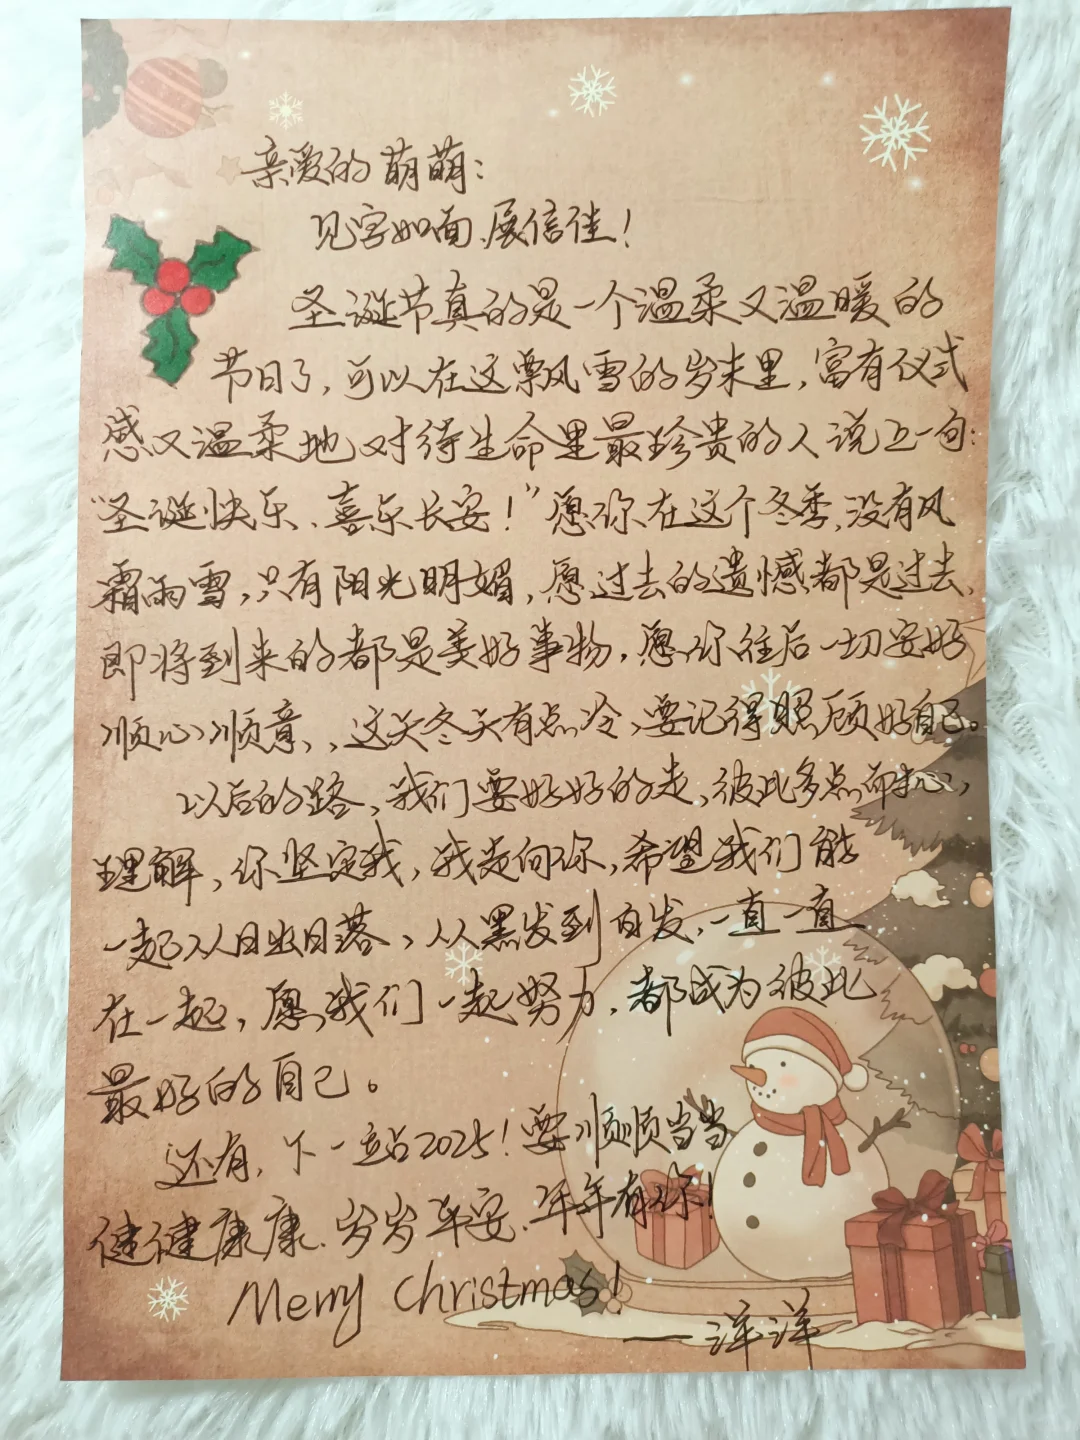 亲爱的萌萌：
见字如面、展信佳！
圣诞节真的是一个温柔又温暖的
节日了，可以在这飘风雪的岁末里，富有仪式
感又温柔地对待生命里最珍贵的人说上一句：
“圣诞快乐、喜乐长安！”愿你在这个冬季、没有风
霜雨雪，只有阳光明媚，愿过去的遗憾都是过去、
即将到来的都是美好事物，愿你往后一切安好
顺心顺意、、这关冬天有点冷、要记得照顾好自己。
以后的路、我们要好好的走、彼此多点耐心，
理解，你坚定我，我走向你，希望我们能
一起从日出日落，从黑发到白发，一直一直
在一起，愿我们一起努力，都成为彼此
最好的自己。
还有，下一站2025！要顺顺当当
健健康康、岁岁平安、年年有你！
Merry Christmas！
——洋洋